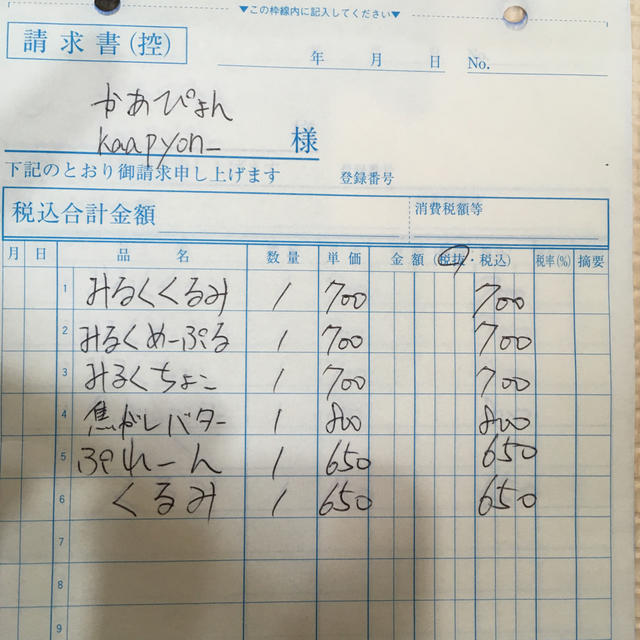 ▼この枠線内に記入してください▼
請求書(控)
年 月 日 No.
かあぴょん
kaapyon 様
下記のとおり御請求申し上げます 登録番号
税込合計金額 消費税額等
月 日 品名 数量 単価 金額(税抜・税込) 税率(%) 摘要
1 みるくくるみ 1 700 700
2 みるくめーぷる 1 700 700
3 みるくちょこ 1 700 700
4 焦がしバター 1 800 800
5 ぷれーん 1 650 650
6 くるみ 1 650 650
7
8
9